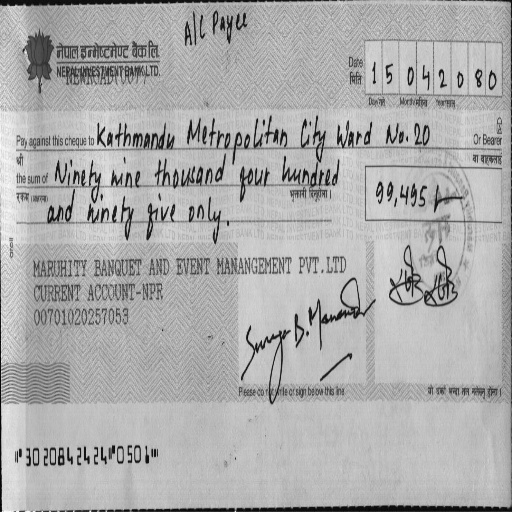 A/C Payee
नेपाल इन्भेष्टमेण्ट बैंक लि.
NEPAL INVESTMENT BANK LTD.
Date
मिति
1 5 0 4 2 0 8 0
Day/गते Month/महिना Year/साल
Pay against this cheque to Kathmandu Metropolitan City Ward No. 20 Or Bearer
श्री
वा वाहकलाई
the sum of Ninety nine thousand four hundred
रकम (अक्षरमा)
भुक्तानी दिनुहोला।
99,495
and ninety five only.
MARUHITY BANQUET AND EVENT MANANGEMENT PVT.LTD
CURRENT ACCOUNT-NPR
00701020257053
Please do not write or sign below this line
⑈30 2084 24 24⑈0 50 1⑈